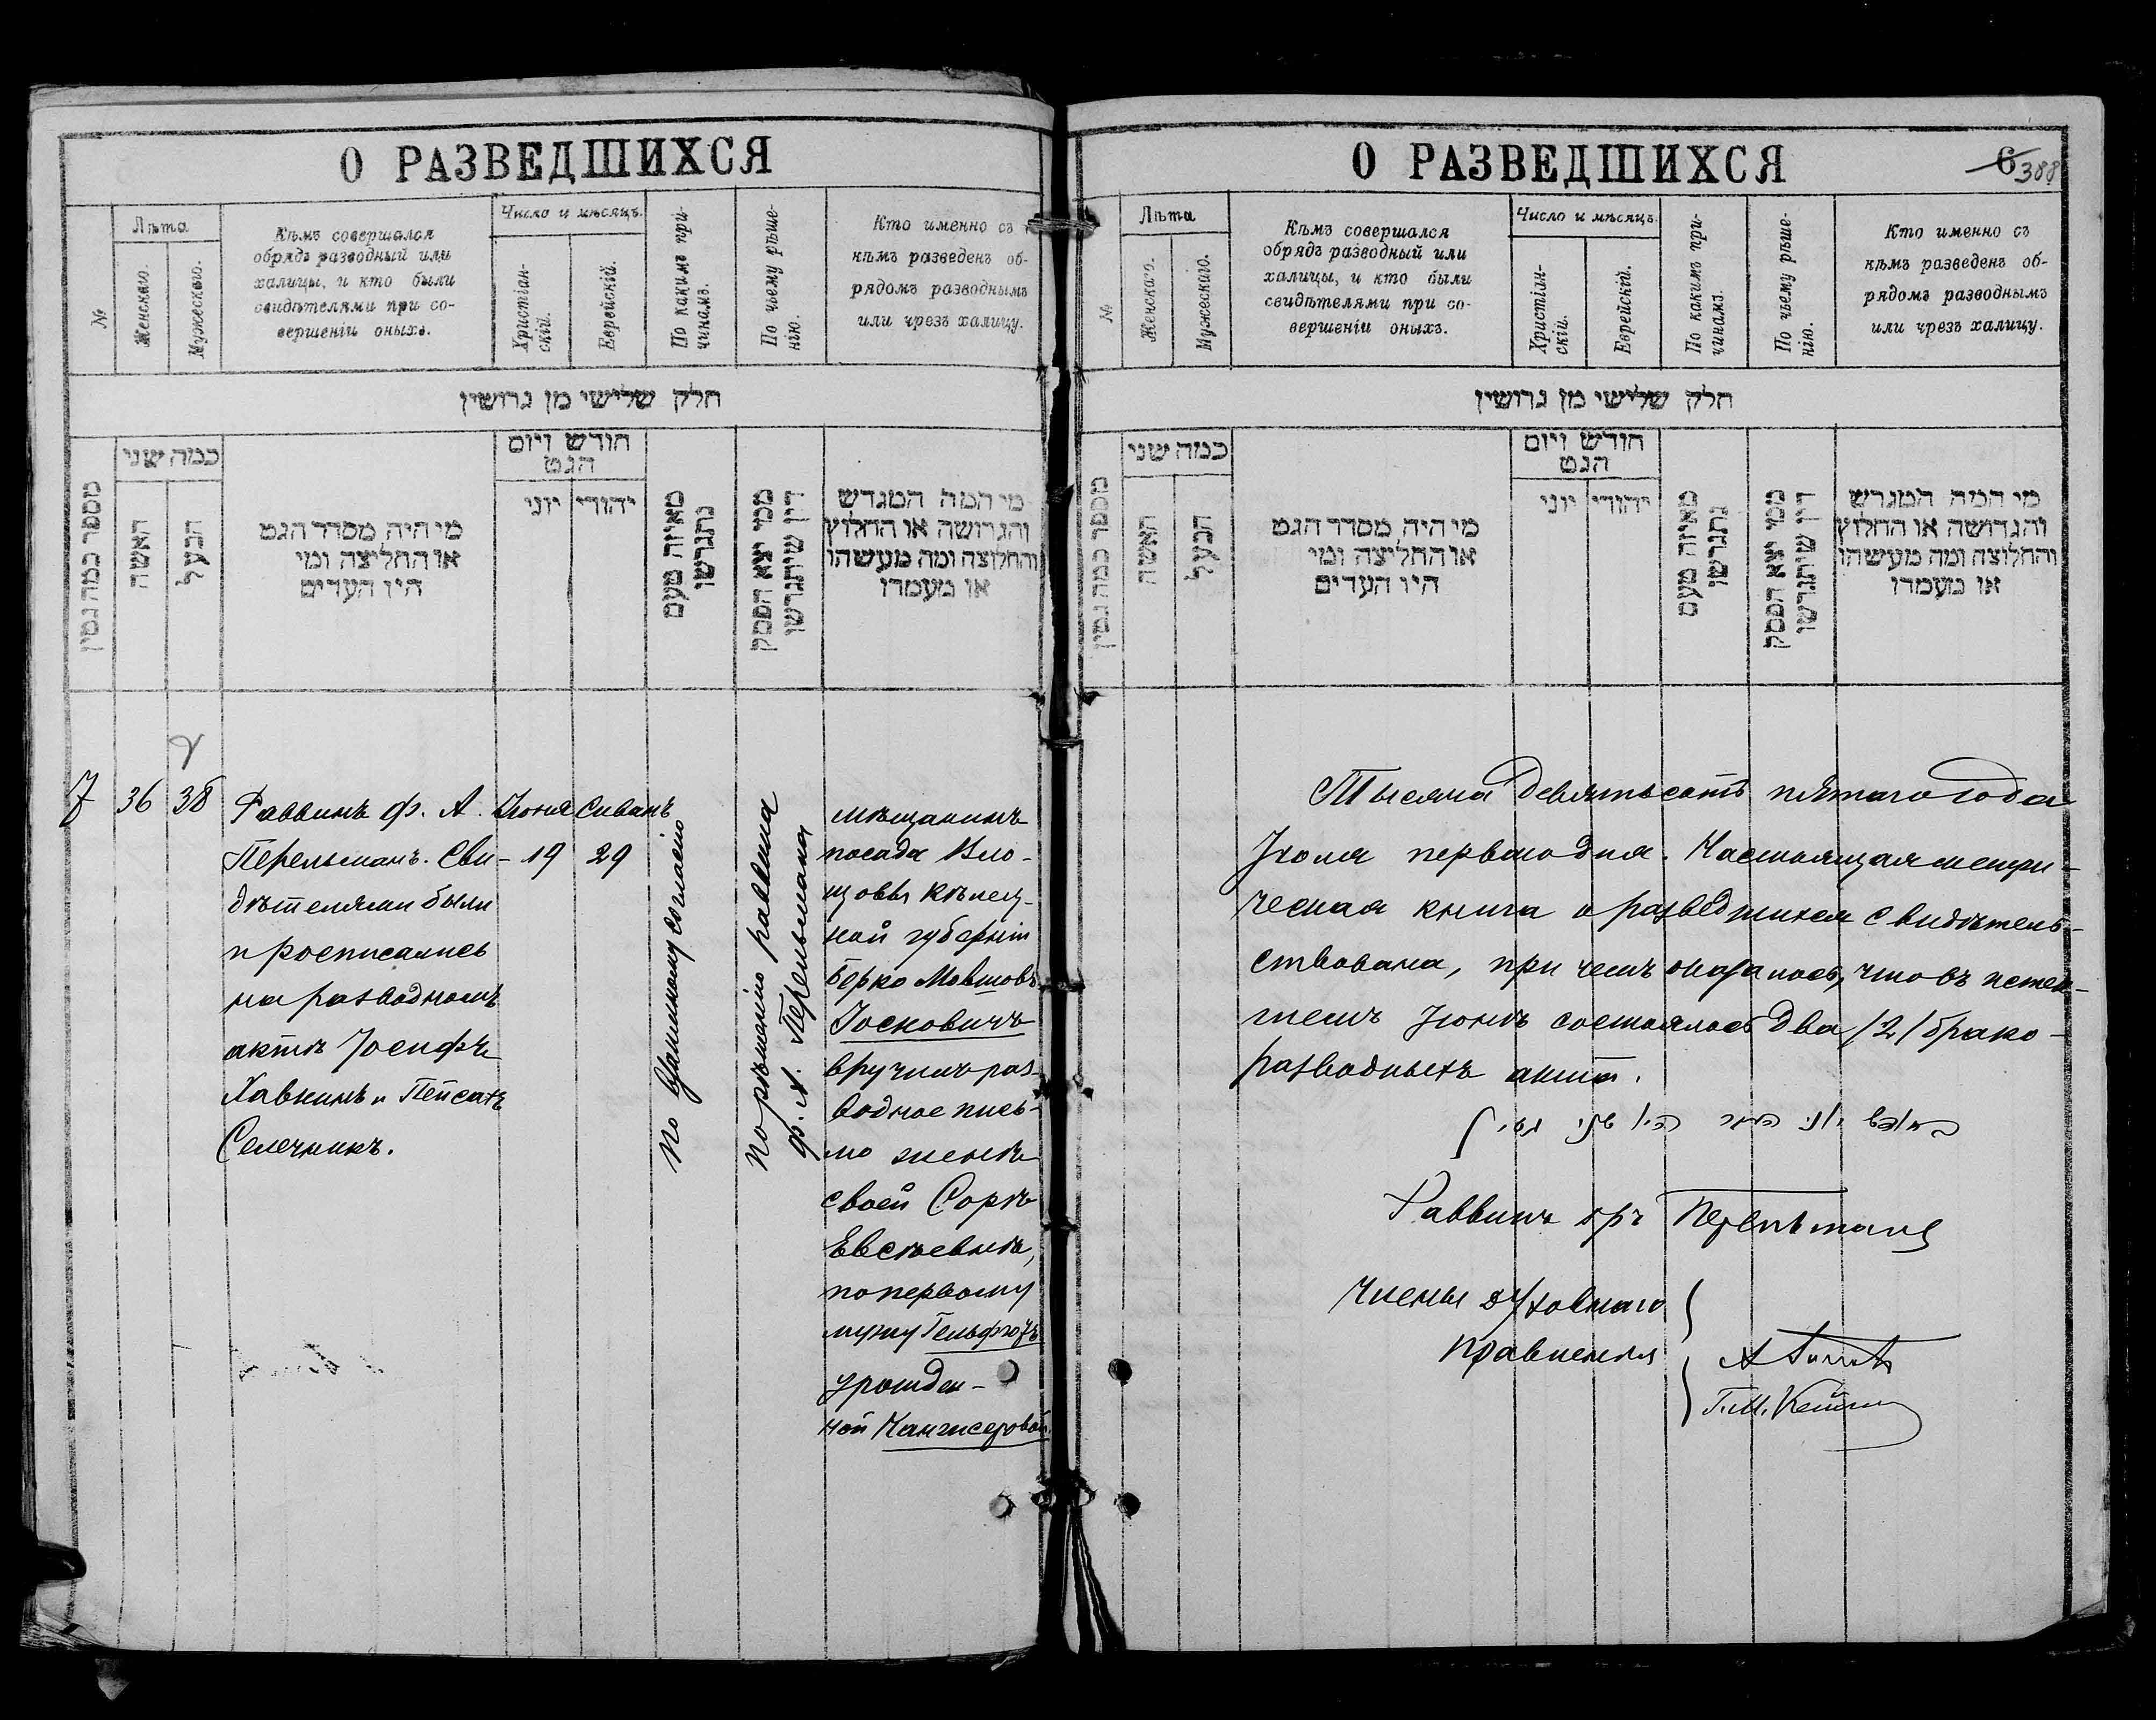 О РАЗВЕДШИХСЯ
№
Лѣта
Женскаго.
Мужескаго.
Кѣмъ совершался
обрядъ разводный или
халицы, и кто были
свидѣтелями при со-
вершеніи оныхъ.
Число и мѣсяцъ.
Христіан-
скій.
Еврейскій.
По какимъ при-
чинамъ.
По чьему рѣше-
нію.
Кто именно съ
кѣмъ разведенъ об-
рядомъ разводнымъ
или чрезъ халицу.
חלק שלישי מן גרושין
מספר כמה גטין
כמה שני
האשה
הבעל
מי היה מסדר הגט
או החליצה ומי
היו העדים
חודש ויום
הגט
יוני
יהודי
מאיזה טעם
נתגרשו
ממי יצא הפסק
דין שיתגרשו
מי המה המגרש
והגרושה או החלוץ
והחלוצה ומה מעשהו
או מעמדו
7
36
38
Раввинъ ф. А.
Перельманъ. Сви-
дѣтелями были
и росписались
на разводномъ
актѣ Іосифъ
Хавкинъ и Пейсахъ
Селечникъ.
Іюня
19
Сиванъ
29
По взаимному согласію
По рѣшенію раввина
ф. А. Перельмана
мѣщанинъ
посада Вло-
щовы Кѣлец-
кой губерніи
Берко Мовшовъ
Іосковичъ
вручилъ раз-
водное пись-
мо женѣ
своей Сорѣ
Евсѣевнѣ,
по первому
мужу Гельфготъ
урожден-
ной Кангисеровой.
О РАЗВЕДШИХСЯ
6
388
№
Лѣта
Женскаго.
Мужескаго.
Кѣмъ совершался
обрядъ разводный или
халицы, и кто были
свидѣтелями при со-
вершеніи оныхъ.
Число и мѣсяцъ.
Христіан-
скій.
Еврейскій.
По какимъ при-
чинамъ.
По чьему рѣше-
нію.
Кто именно съ
кѣмъ разведенъ об-
рядомъ разводнымъ
или чрезъ халицу.
חלק שלישי מן גרושין
מספר כמה גטין
כמה שני
האשה
הבעל
מי היה מסדר הגט
או החליצה ומי
היו העדים
חודש ויום
הגט
יוני
יהודי
מאיזה טעם
נתגרשו
ממי יצא הפסק
דין שיתגרשו
מי המה המגרש
והגרושה או החלוץ
והחלוצה ומה מעשהו
או מעמדו
Тысяча девятьсотъ пятаго года
Іюля перваго дня. Настоящая метри-
ческая книга о разведшихся свидѣтель-
ствована, при чемъ оказалось, что въ истек-
шемъ Іюнѣ состоялось два /2/ брако-
разводныхъ акта.
בחודש יוני העבר היו שני גטין
Раввинъ Перельманъ
Члены духовнаго
правленія